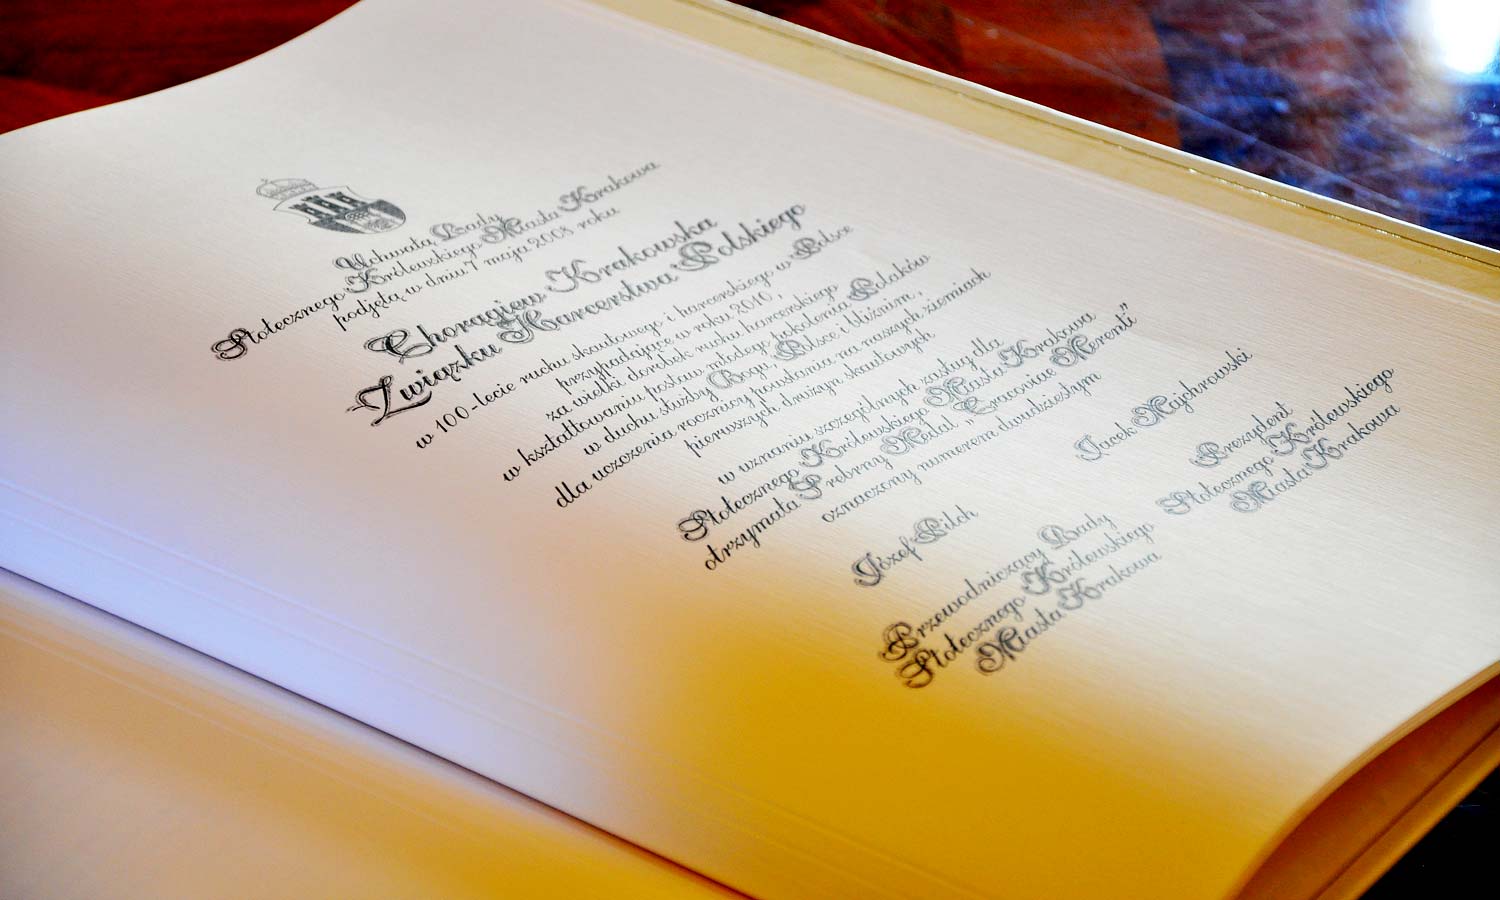 Uchwałą Rady
Stołecznego Królewskiego Miasta Krakowa
podjętą w dniu 7 maja 2008 roku
Chorągiew Krakowska
Związku Harcerstwa Polskiego
w 100-lecie ruchu skautowego i harcerskiego w Polsce
przypadające w roku 2010,
za wielki dorobek ruchu harcerskiego
w kształtowaniu postaw młodego pokolenia Polaków
w duchu służby Bogu, Polsce i bliźnim,
dla uczczenia rocznicy powstania na naszych ziemiach
pierwszych drużyn skautowych
w uznaniu szczególnych zasług dla
Stołecznego Królewskiego Miasta Krakowa
otrzymała Srebrny Medal „Cracoviae Merenti”
oznaczony numerem dwudziestym
Józef Pilch
Przewodniczący Rady
Stołecznego Królewskiego
Miasta Krakowa
Jacek Majchrowski
Prezydent
Stołecznego Królewskiego
Miasta Krakowa